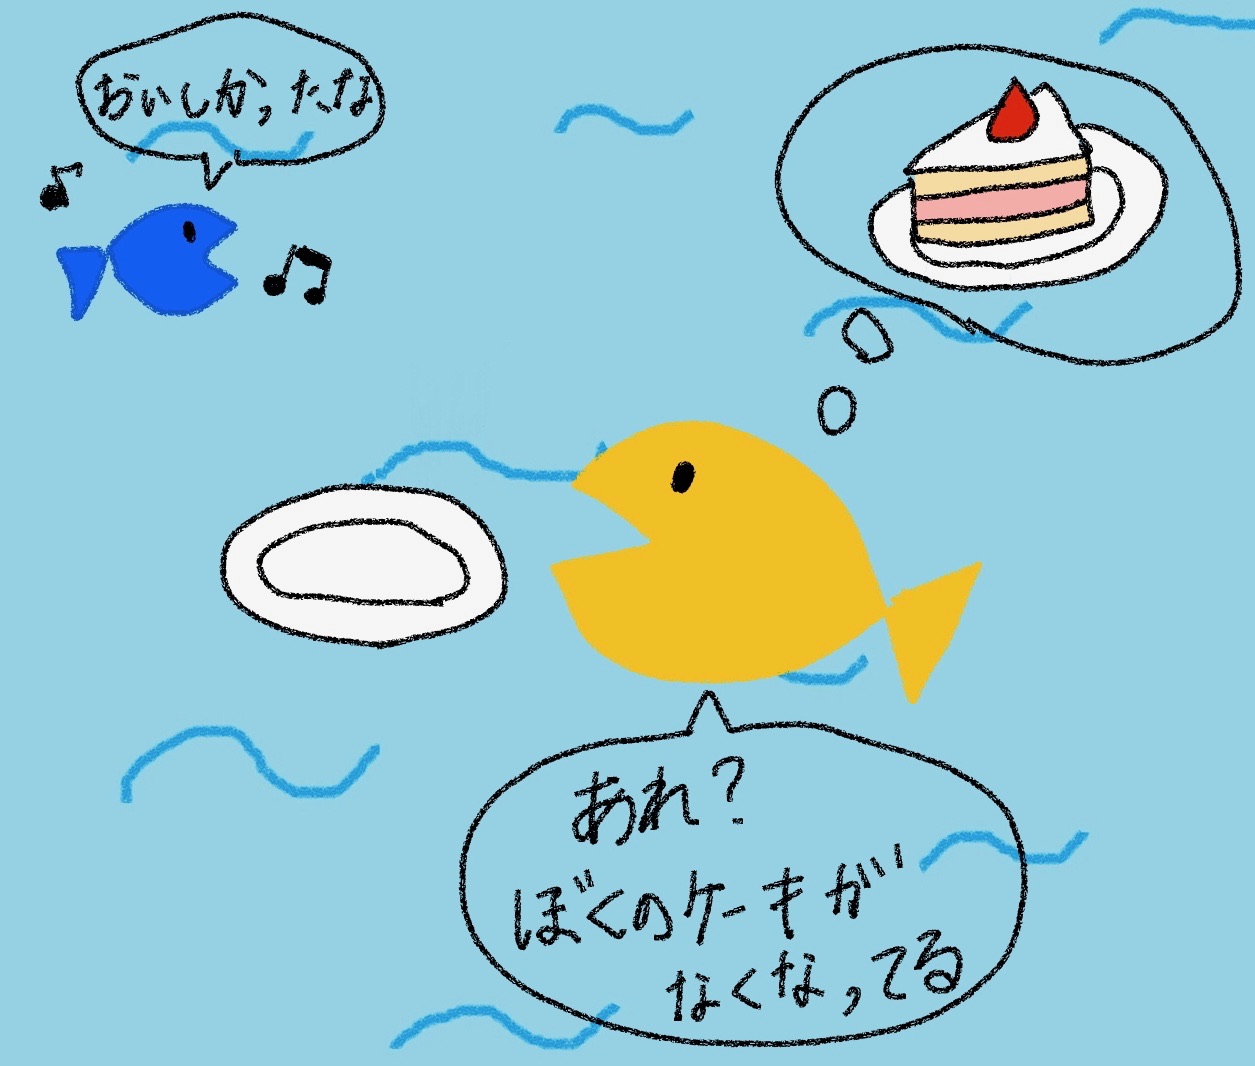 おいしかったな
あれ？
ぼくのケーキが
なくなってる